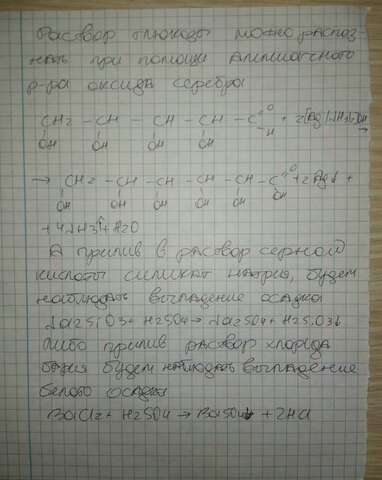 Раствор глюкозы можно распоз
нать при помощи аммиачного
р-ра оксида серебра
CH2 - CH - CH - CH - C =O -H + 2[Ag(NH3)2]OH →
OH OH OH OH
→ CH2 - CH - CH - CH - CH - C =O OH + 2Ag↓ +
OH OH OH OH OH
+ 4NH3↑ + H2O
А прилив в раствор серной
кислоты силикат натрия, будем
наблюдать выпадение осадка
Na2SiO3 + H2SO4 → Na2SO4 + H2SiO3↓
Либо прилив раствор хлорида
бария будем наблюдать выпадение
белого осадка
BaCl2 + H2SO4 → BaSO4↓ + 2HCl